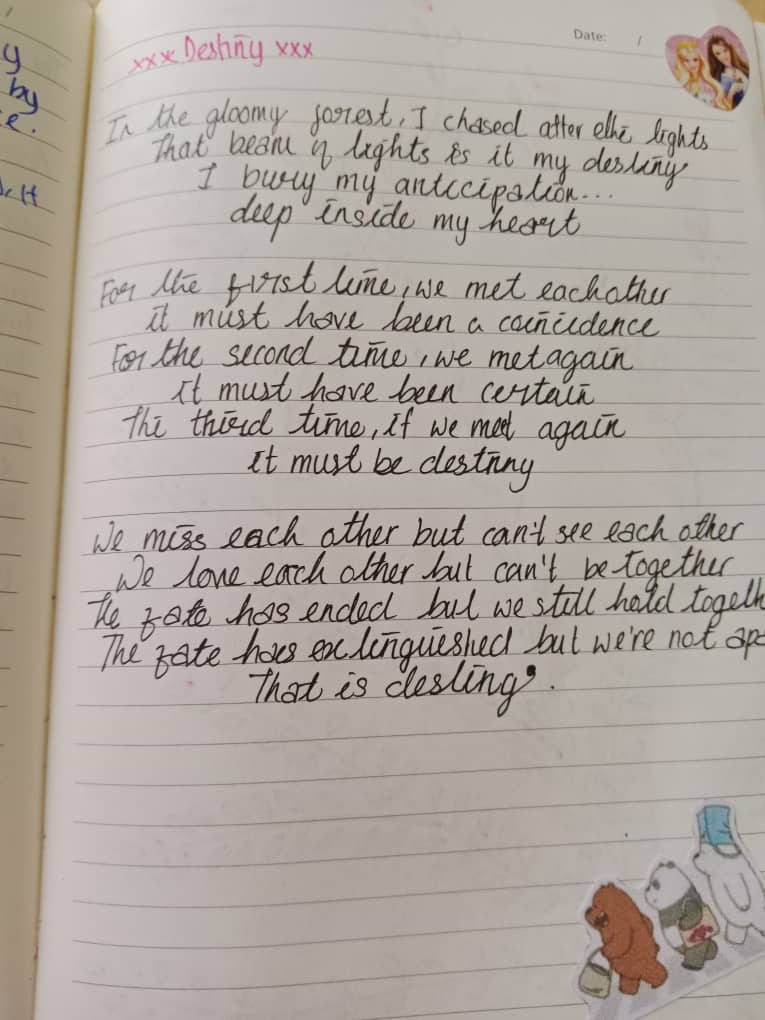 y
by
e.
xxx Destiny xxx
Date: /
In the gloomy forest, I chased after the lights
That beam of lights is it my destiny
I bury my anticipation...
deep inside my heart
For the first time, we met eachother
it must have been a coincidence
For the second time, we met again
it must have been certain
The third time, if we met again
it must be destiny
We miss each other but can't see each other
We love each other but can't be together
The fate has ended but we still hold togeth
The fate has extinguished but we're not apa
That is destiny.